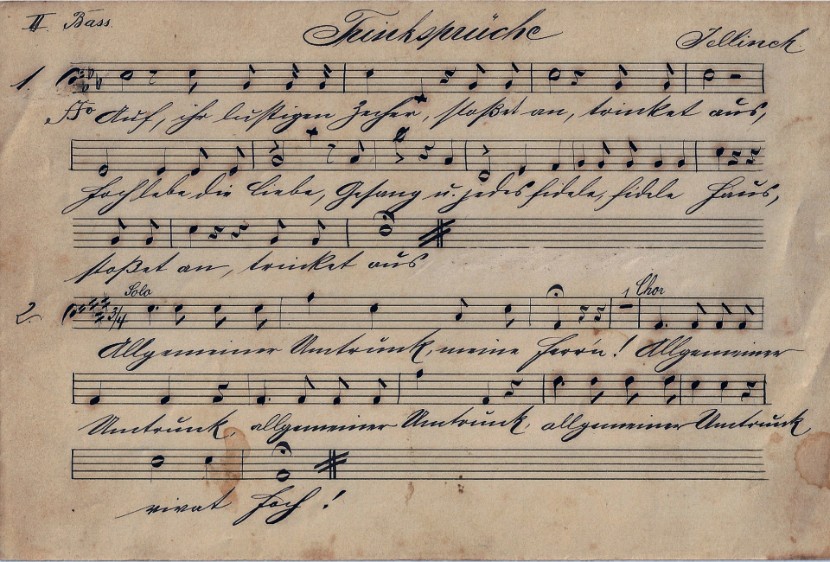 II Bass.
Trinksprüche
Jellinek.
1.
Auf, ihr lustigen Zecher, stoßet an, trinket aus,
Hoch lebe die Liebe, Gesang u. jedes fidele, fidele Haus,
stoßet an, trinket aus
2. 3/4 Solo 1 Chor
Allgemeiner Umtrunk, meine Herr'n! Allgemeiner
Umtrunk, allgemeiner Umtrunk, allgemeiner Umtrunk,
vivat hoch!